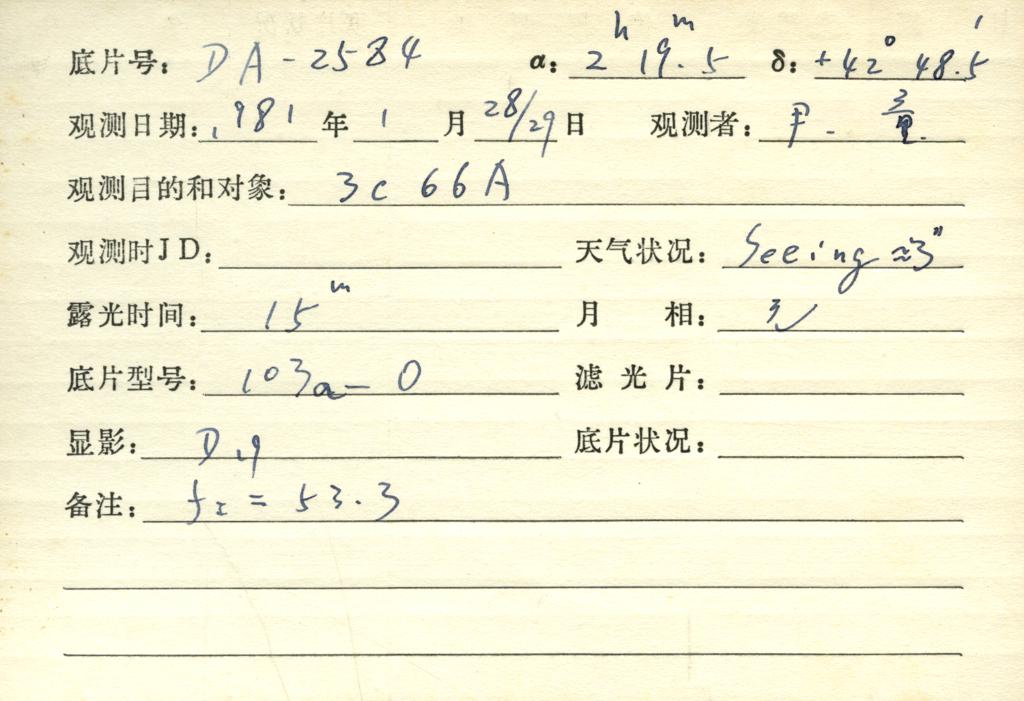 底片号: DA-2584 α: 2ʰ 19ᵐ.5 δ: +42° 48.5′
观测日期: 1981 年 1 月 28/29 日 观测者:
观测目的和对象: 3c 66A
观测时JD: 天气状况: Seeing ≈3″
露光时间: 15ᵐ 月 相:
底片型号: 103a-O 滤光片:
显影: D19 底片状况:
备注: = 53.3